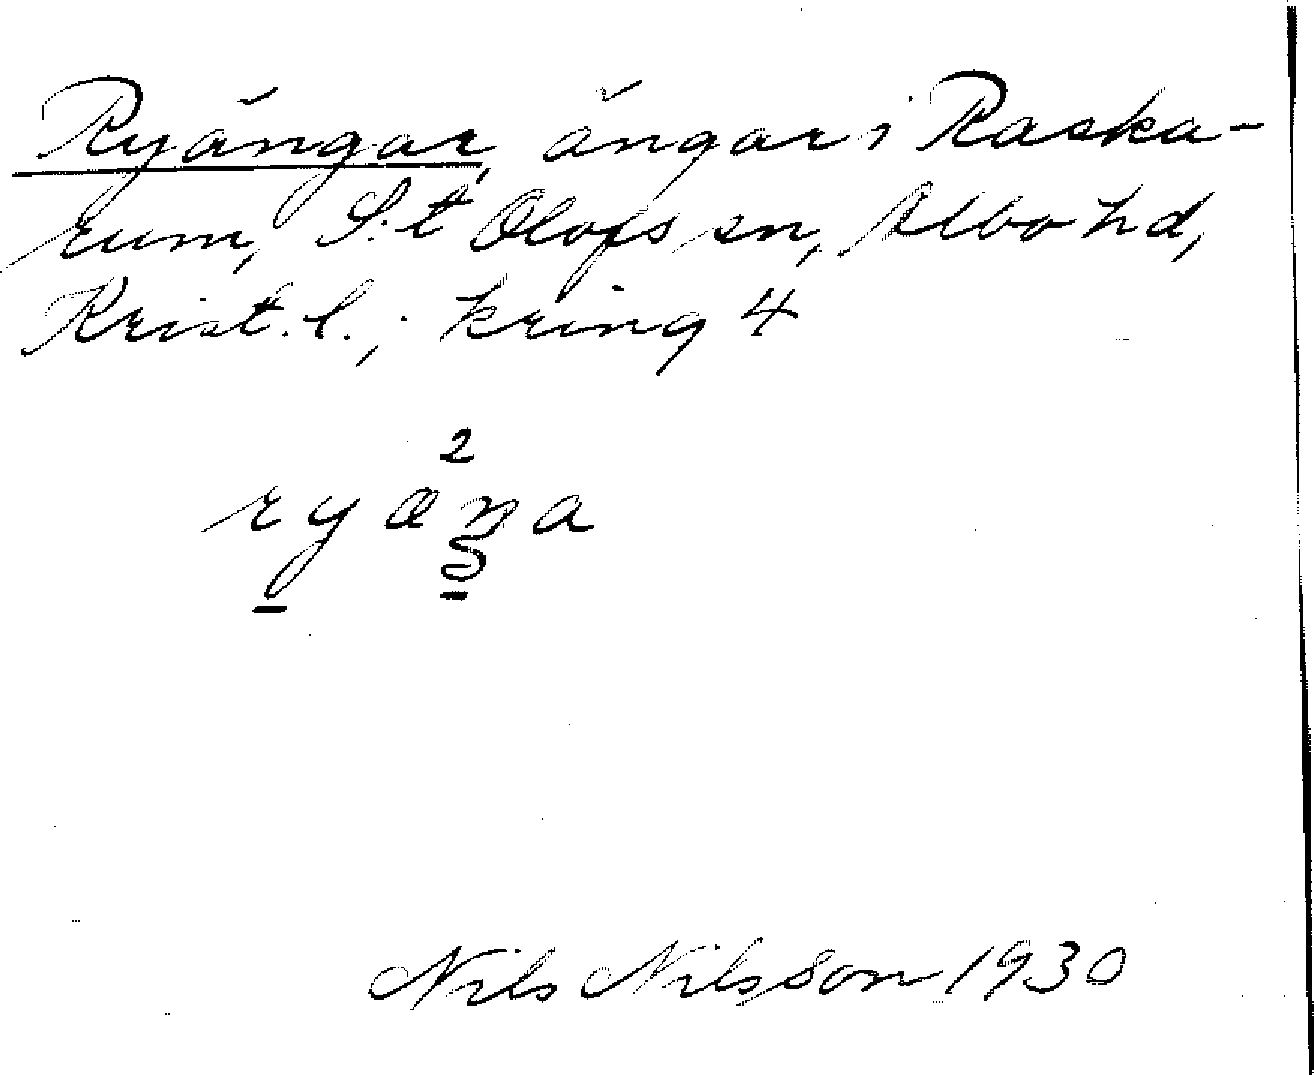 Ryängar, ängar i Raska-
rum, S:t Olofs sn, Albo hd,
Krist. l.; kring 4
2
ryæŋa
Nils Nilsson 1930